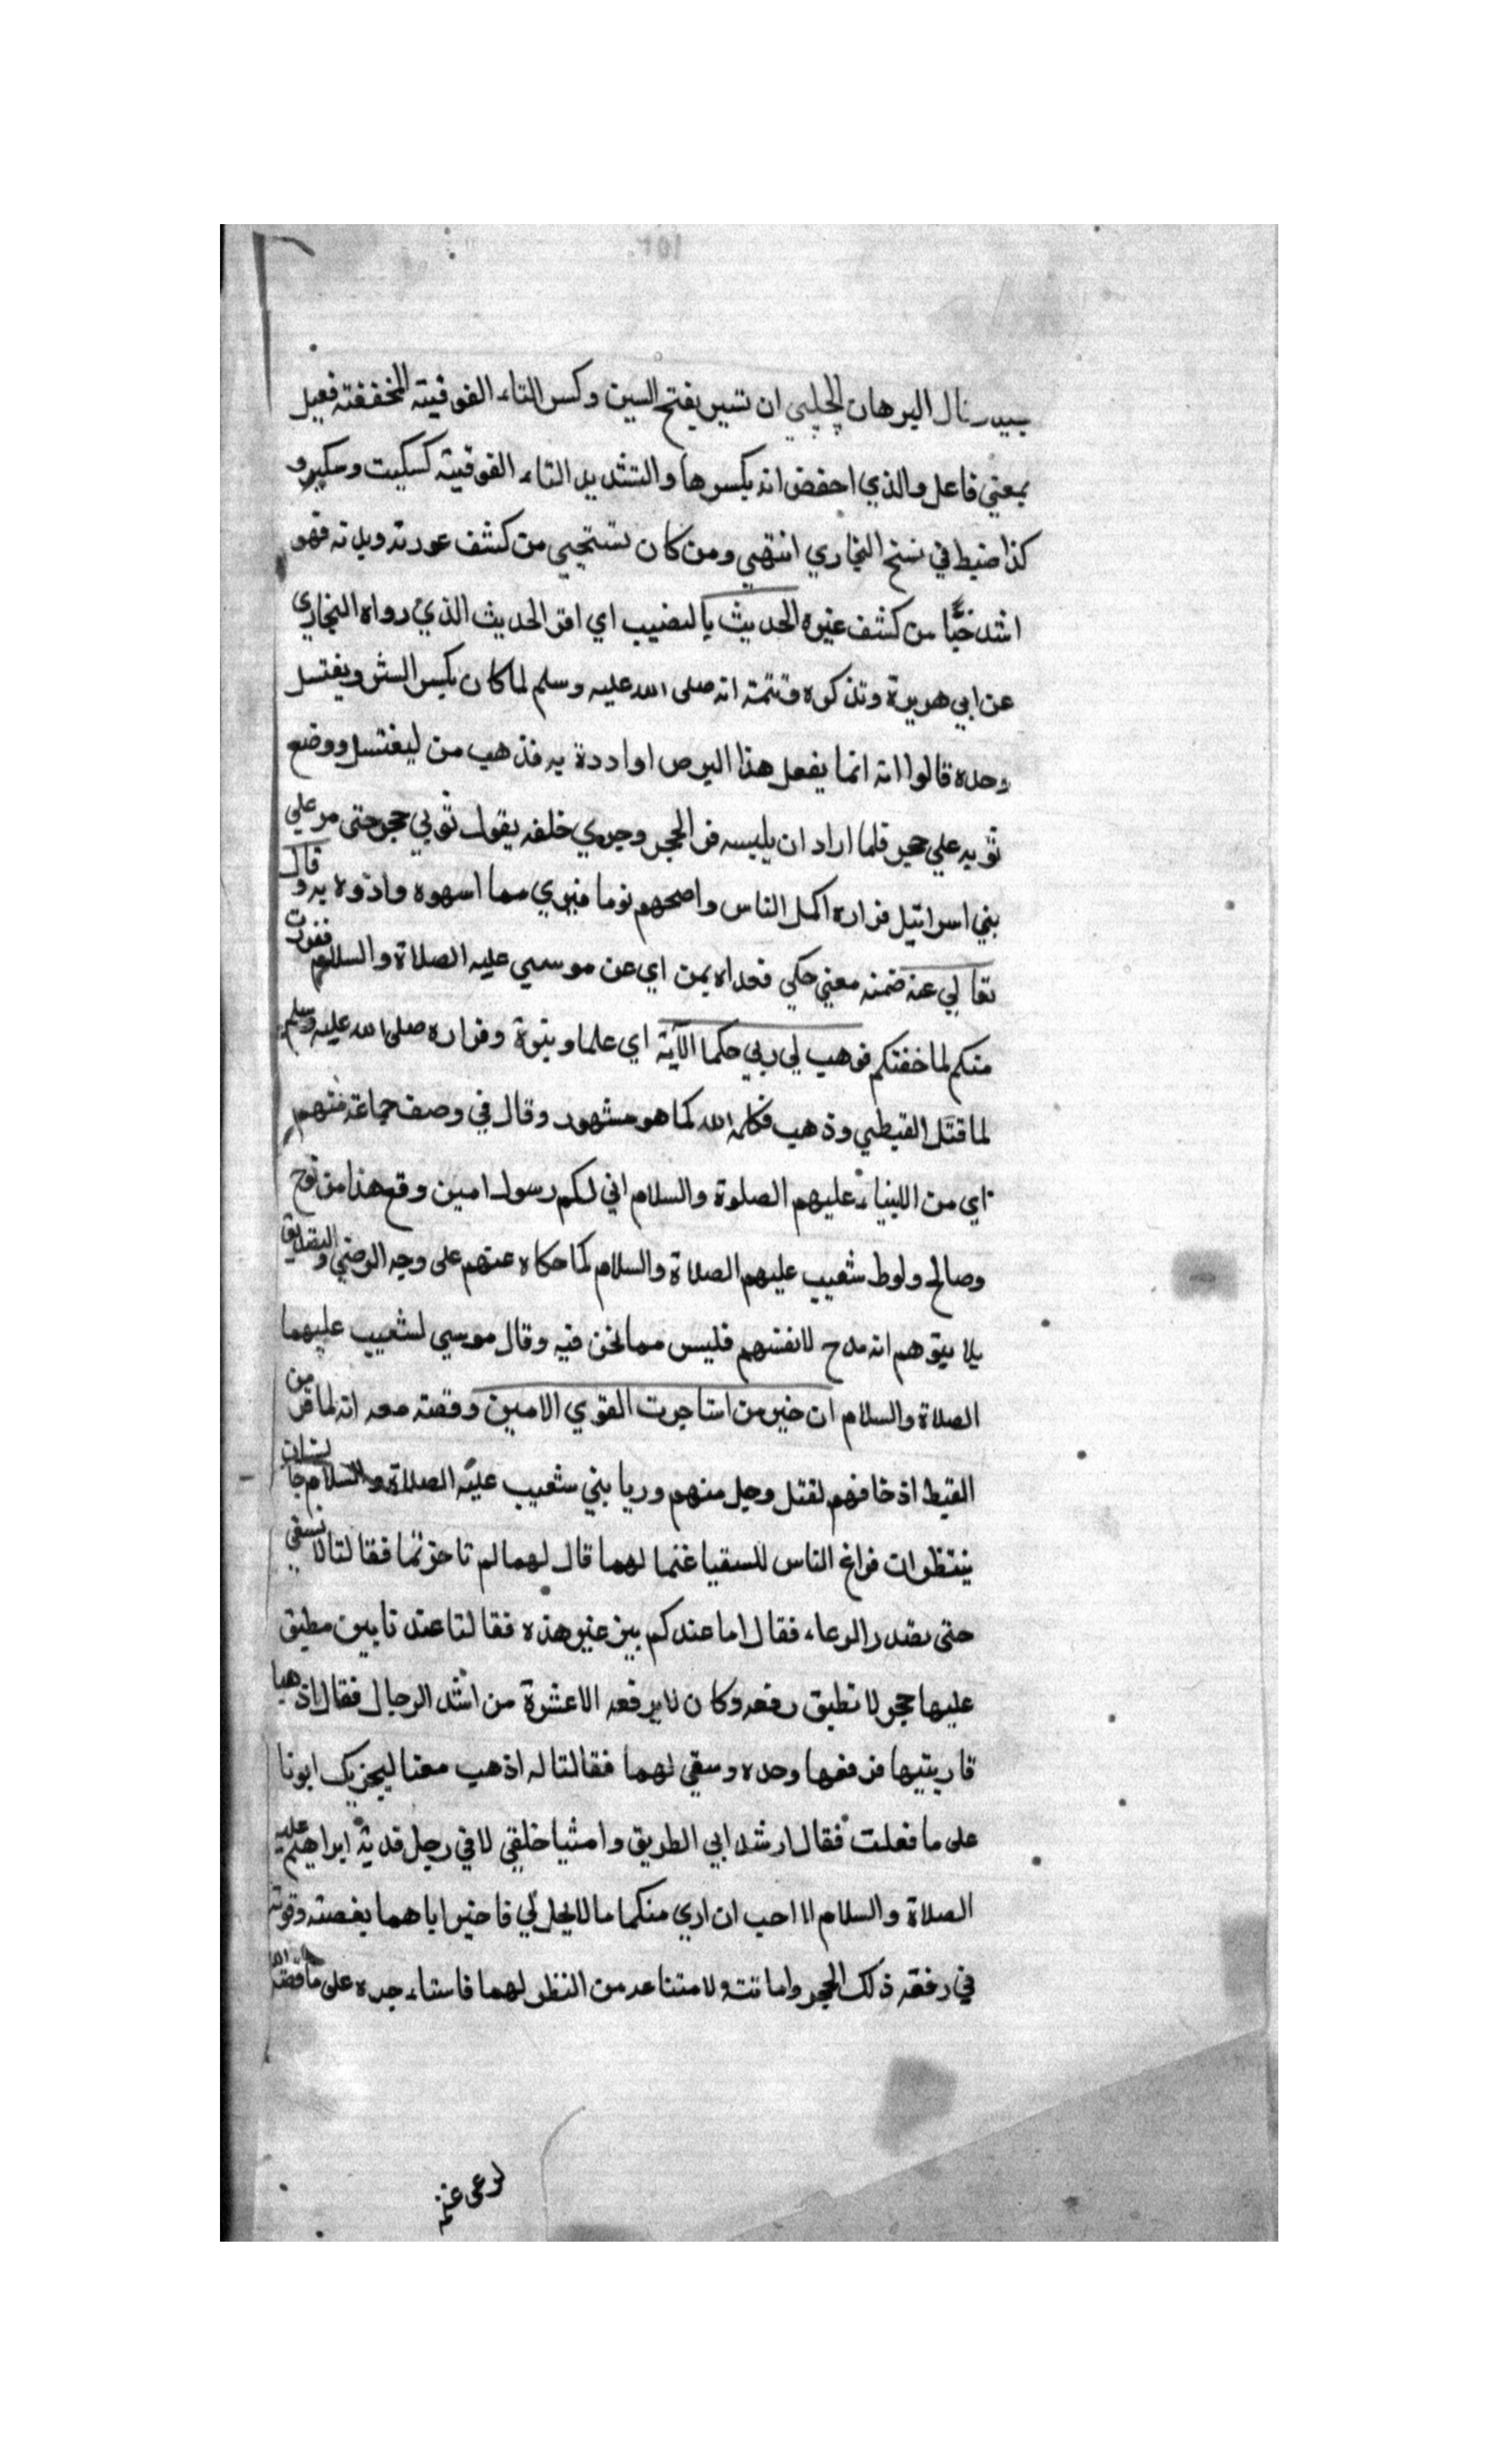 البرهان الحلبي ان ستير بفتح السين وكسر التاء الفوقيته المخففته فعيل
بمعني فاعل والذي احفض انه بكسرها والتشديد التاء الفوقيته كسكيت وسكير و
كذا ضبط في نسخ البخاري انتهي ومن كان يستحيي من كشف عورته وبدنه فهو
اشد حيًّا من كشف غيره الحديث بالنصيب اي اقر الحديث الذي رواه البخاري
عن ابي هريرة وتذكره وتتمته انه صلى الله عليه وسلم لما كان يكسر الستر ويغتسل
وحده قالوا انه انما يفعل هذا البرص او اددة به فذهب من ليغتسل ووضع
ثوبه علي حجر فلما اراد ان يلبسه فر الحجر وجري خلفه يقول ثوبي حجر حتى مر علي
بني اسرائيل فراره اكمل الناس واصحهم نوما فبري مما اسهوه واذوه به وقال
تعالي عنه ضمنه معني حكي فعداه بمن اي عن موسي عليه الصلاة والسلام ففررت
منكم لما خفتكم فوهب لي ربي حكما الآية اي علما وبنوة وفراره صلى الله عليه وسلم
لما قتل القبطي وذهب فكلمه الله كما هو مشهور وقال في وصف جماعة منهم
اي من اللبنياء عليهم الصلوة والسلام اني لكم رسول امين وقع هذا من نوح
وصالح ولوط شعيب عليهم الصلاة والسلام كما حكاه عنهم على وجه الرضي والتصديق
يلا يتوهم انه مدح لانفسهم فليس مما نحن فيه وقال موسي لشعيب عليهما
الصلاة والسلام ان خير من استاجرت القوي الامين وقصته معه انه لما فر من
القبط اذ خافهم لقتل رجل منهم وريا بني شعيب عليه الصلاة والسلام جا بستان
ينتظران فراغ الناس للسقيا غنما لهما قال لهما لم تاخرتما فقالتا لا نسقي
حتى يصدر الرعاء فقال اما عندكم بير غير هذه فقالتا عندنا بير مطبق
عليها حجر لا نطيق رفعه وكان لا يرفعه الا عشرة من اشد الرجال فقال اذهبا
فاريتيها فرفعها وحده وسقي لهما فقالتا له اذهب معنا ليجزيك ابونا
على ما فعلت فقال ارشد ابي الطريق وامشيا خلفي لاني رجل قدية ابراهيم عليه
الصلاة والسلام لا احب ان اري منكما ما لا يحل لي فاخبر اباهما بقصته وقوته
في رفعه ذلك الحجر وامانته ولامتناعه من النظر لهما فاستاء جره على ما قصه الله
لرعى غنمه